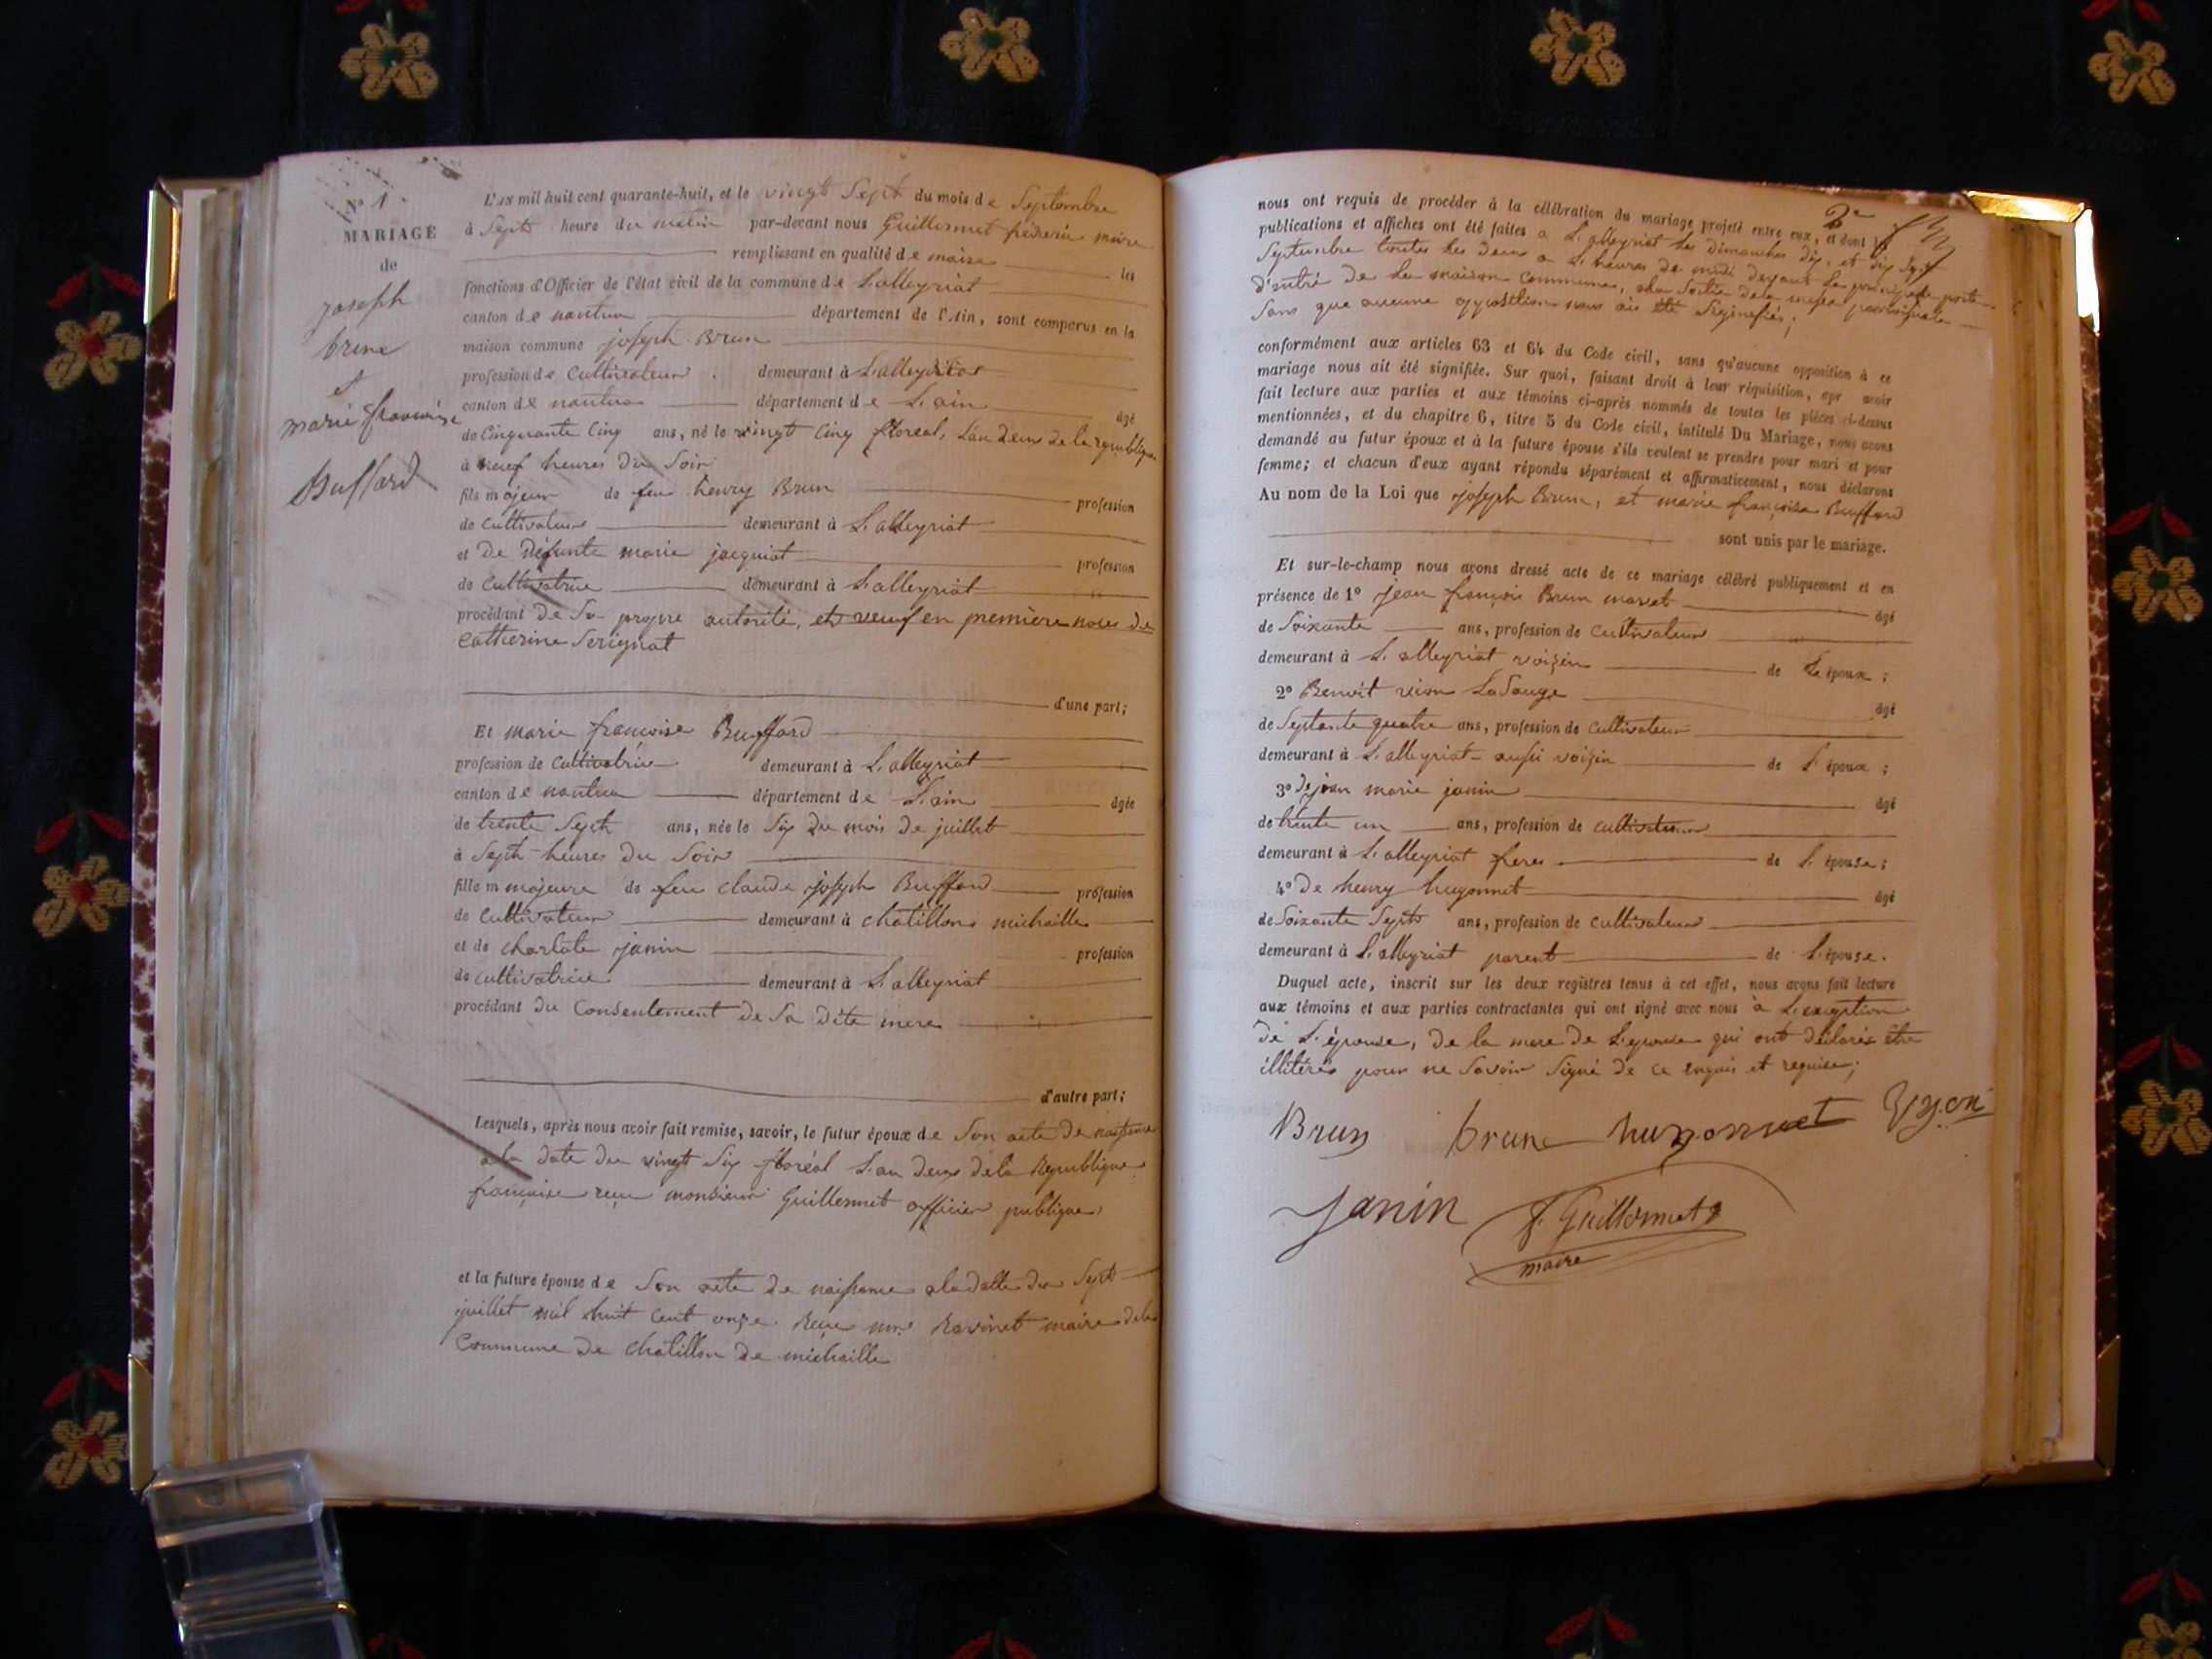 Nº 1.
MARIAGE
de
joseph
brune
et
marie françoise
Buffard
L'AN mil huit cent quarante-huit, et le vingt Sept du mois de Septembre
à Sept heure du matin par-devant nous Guillermet maire
remplissant en qualité de maire les
fonctions d'Officier de l'état civil de la commune de L'alleyriat
canton de nantua département de l'Ain, sont comparus en la
maison commune joseph Brun
profession de Cultivateur demeurant à L'alleyriat
canton de nantua département de L'ain âgé
de Cinquante Cinq ans, né le vingt Cinq floréal, L'an deux de la republique
à neuf heures du Soir
fils majeur de feu henry Brun profession
de cultivateur demeurant à L'alleyriat
et de défunte marie jacquiot profession
de cultivatrice demeurant à L'alleyriat
procédant de Sa propre autorité, et veuf en première noces de
Catherine Serignat
d'une part;
Et marie françoise Buffard
profession de cultivatrice demeurant à L'alleyriat
canton de nantua département de L'ain âgée
de trente Sept ans, née le Six du mois de juillet
à Sept heures du Soir
fille majeure de feu claude joseph Buffard profession
de cultivateur demeurant à chatillon michaille
et de charlote janin profession
de cultivatrice demeurant à L'alleyriat
procédant du Consentement de Sa dite mere
d'autre part;
Lesquels, après nous avoir fait remise, savoir, le futur époux de Son acte de naissance
à la date du vingt Six floréal L'an deux de la Republique
française reçu monsieur Guillermet officier publique
et la future épouse de Son acte de naissance a la datte du Sept
juillet mil huit Cent onze Reçu mr Ravinet maire de la
Commune de chatillon de michaille
2e
nous ont requis de procéder à la célébration du mariage projeté entre eux, et dont les
publications et affiches ont été faites a L'alleyriat les dimanches dix, et dix Sept
Septembre toutes les deux a heures de midi devant la principale porte
d'entré de la maison Commune, a la Sortie de la messe paroissiale
Sans que aucune opposition nous aie été Signifiée;
conformément aux articles 63 et 64 du Code civil, sans qu'aucune opposition à ce
mariage nous ait été signifiée. Sur quoi, faisant droit à leur réquisition, apr avoir
fait lecture aux parties et aux témoins ci-après nommés de toutes les pièces ci-dessus
mentionnées, et du chapitre 6, titre 5 du Code civil, intitulé Du Mariage, nous avons
demandé au futur époux et à la future épouse s'ils veulent se prendre pour mari et pour
femme; et chacun d'eux ayant répondu séparément et affirmativement, nous déclarons
Au nom de la Loi que joseph Brun, et marie françoise Buffard
sont unis par le mariage.
Et sur-le-champ nous avons dressé acte de ce mariage célébré publiquement et en
présence de 1º jean françois Brun maret âgé
de Soixante ans, profession de Cultivateur
demeurant à L'alleyriat voisin de L'époux;
2º Benoit âgé
de Septante quatre ans, profession de Cultivateur
demeurant à L'alleyriat aussi voisin de L'époux;
3º De jean marie janin âgé
de trente un ans, profession de cultivateur
demeurant à L'alleyriat frere de L'épouse;
4º De henry hugonnet âgé
de Soixante Sept ans, profession de Cultivateur
demeurant à L'alleyriat parent de L'épouse.
Duquel acte, inscrit sur les deux registres tenus à cet effet, nous avons fait lecture
aux témoins et aux parties contractantes qui ont signé avec nous à L'exception
de L'épouse, de la mere de L'epouse qui ont déclarés être
illitérés pour ne Savoir Signé de ce enquis et requise;
Brun brune hugonnet
Janin Guillermet
maire